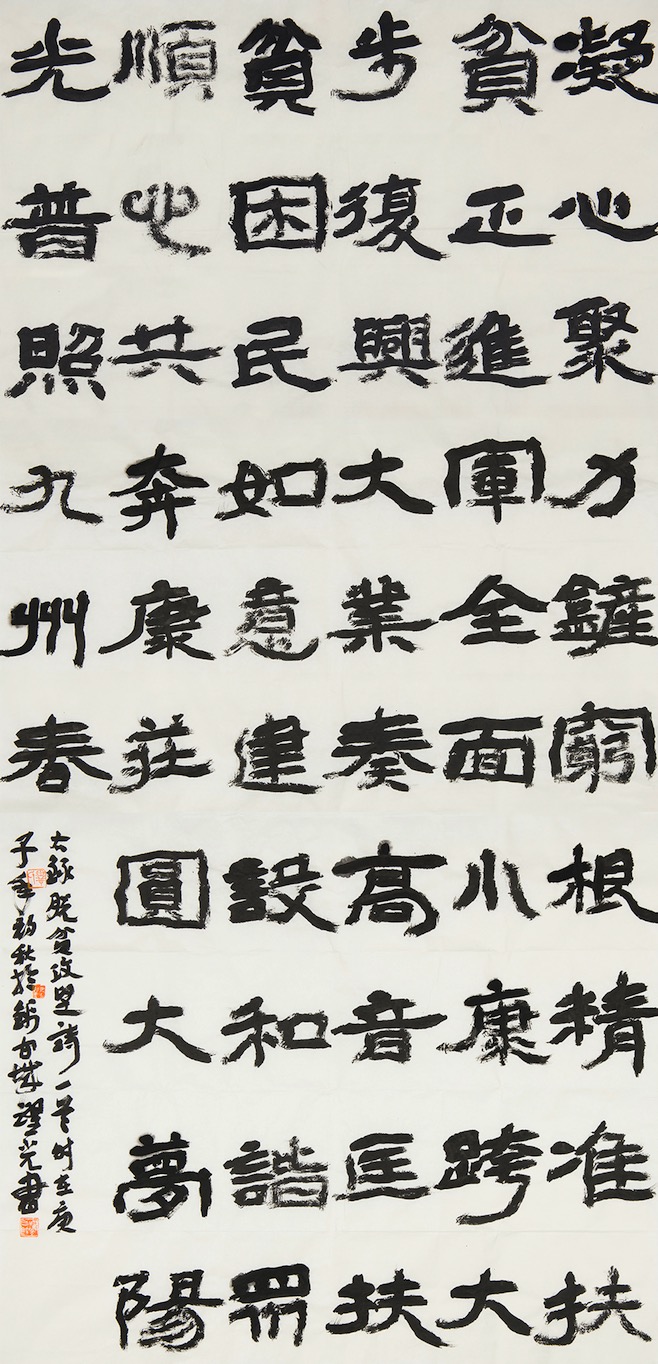 凝心聚力鏟窮根精准扶
貧正進軍全面小康跨大
步復興大業奏高音匡扶
貧困民如意建設和諧眾
順心共奔康莊圓大夢陽
光普照九州春
右録脱貧攻堅詩一首时在庚
子年初秋於錦官城光書